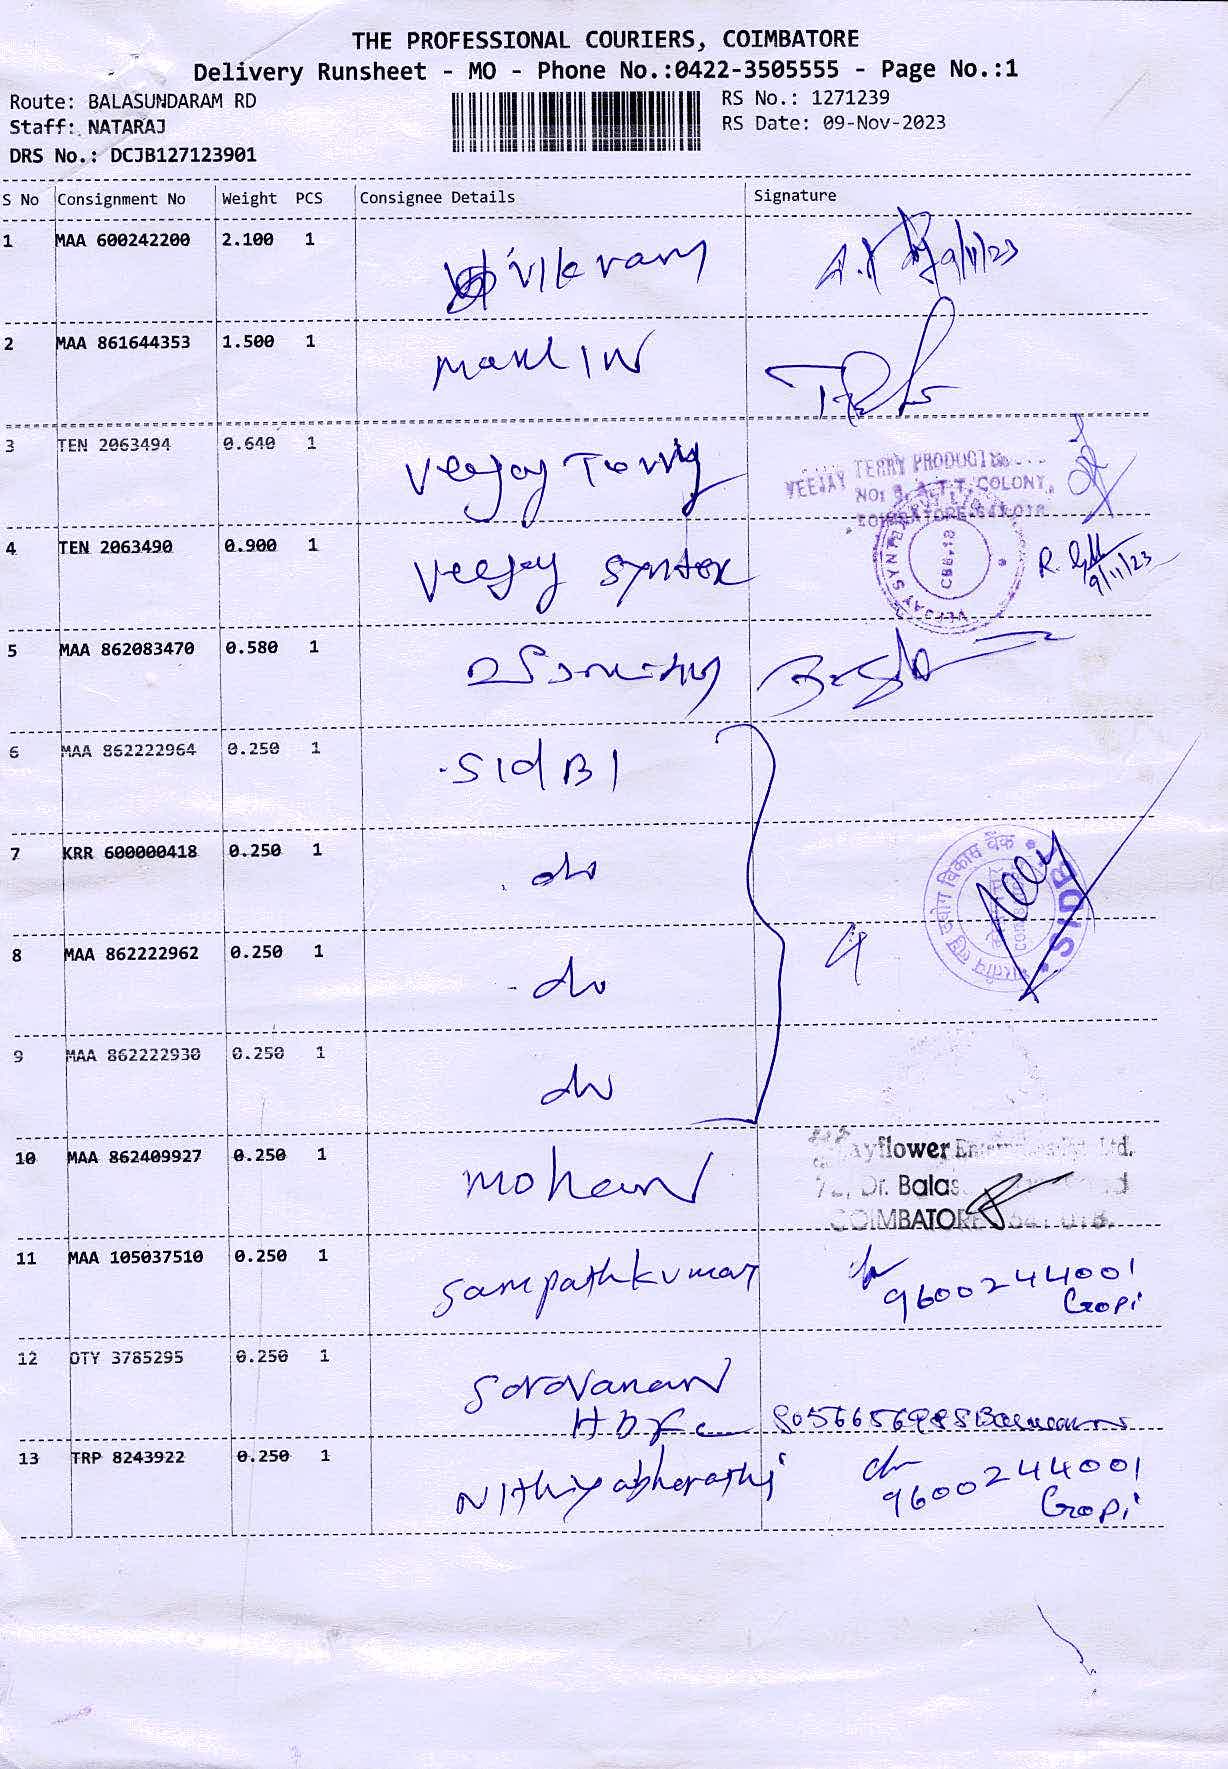 THE PROFESSIONAL COURIERS, COIMBATORE
Delivery Runsheet - MO - Phone No.:0422-3505555 - Page No.:1
Route: BALASUNDARAM RD
RS No.: 1271239
Staff: NATARAJ
RS Date: 09-Nov-2023
DRS No.: DCJB127123901
S No Consignment No Weight PCS Consignee Details Signature
1 MAA 600242200 2.100 1 Vikram 9/11/23
2 MAA 861644353 1.500 1
3 TEN 2063494 0.640 1 Veejay Terry
VEEJAY TERRY PRODUCTS
NO: COLONY,
4 TEN 2063490 0.900 1 Veejay Syntex R. 9/11/23
5 MAA 862083470 0.580 1
6 MAA 862222964 0.250 1 SIdBI
7 KRR 600000418 0.250 1 do
भारतीय लघु उद्योग विकास बैंक
SIDBI
8 MAA 862222962 0.250 1 do 4
9 MAA 862222930 0.250 1 do
10 MAA 862409927 0.250 1 Mohan
Mayflower
72, Dr. Balas
COIMBATORE
11 MAA 105037510 0.250 1 Sampathkumar
9600244001
Gopi
12 OTY 3785295 0.250 1 Saravanan
HDFC
13 TRP 8243922 0.250 1 Nithiyabharathi
9600244001
Gopi